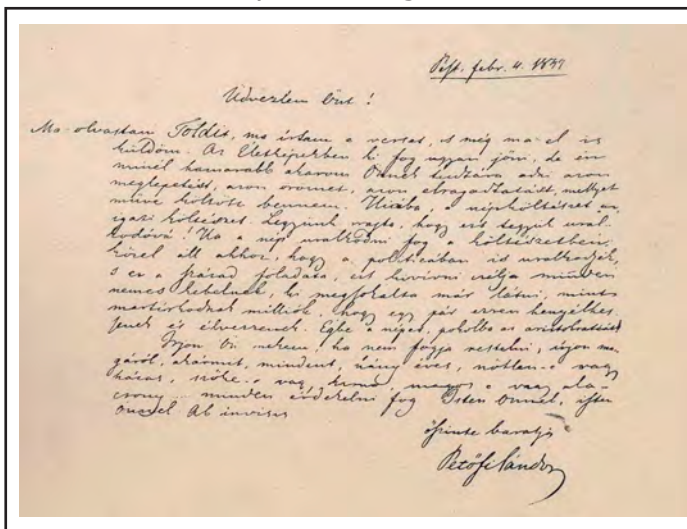 Pest. febr. 4. 1847
Üdvezlem Önt!
Ma olvastam Toldit, ma írtam e verset, s még ma el is
küldöm. Az Életképekben ki fog ugyan jöni, de én
minél hamarabb akarom Önnek tudtára adni azon
meglepetést, azon örömet, azon elragadtatást, mellyet
műve költött bennem. Hiába, a népköltészet az
igazi költészet. Legyünk rajta, hogy ezt tegyük ural-
kodóvá! Ha a nép uralkodni fog a költészetben,
közel áll ahhoz, hogy a politicában is uralkodjék,
s ez a század föladata, ezt kivívni célja minden
nemes kebelnek, ki megsokalta már látni, mint
martírkodnak milliók, hogy egy pár ezren henyélhes-
senek és élvezzenek. Égbe a népet, pokolba az aristokratiát!
Írjon Ön nekem, ha nem fogja restelni, írjon ma-
gáról, akármit, mindent, hány éves, nőtlen-e vagy
házas, szőke-e vagy barna, magos-e vagy ala-
csony... minden érdekelni fog Isten Önnel, isten
Önnel Ab invisis
őszinte barátja
Petőfi Sándor